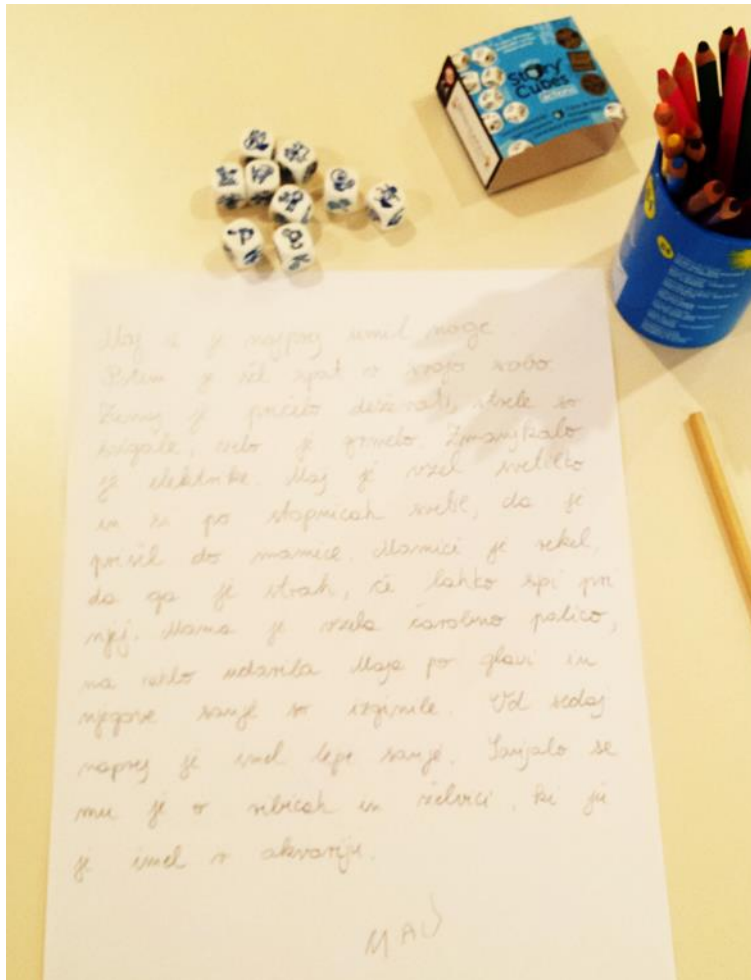 STORY
CUBES
actions
Maj si je najprej umil noge.
Potem je šel spat v svojo sobo.
Zunaj je pričelo deževati, strele so
švigale, celo je grmelo. Zmanjkalo
je elektrike. Maj je vzel svetilko
in si po stopnicah svetil, da je
prišel do mamice. Mamici je rekel,
da ga je strah, če lahko spi pri
njej. Mama je vzela čarobno palico,
na rahlo udarila Maja po glavi in
njegove sanje so izginile. Od sedaj
naprej je imel lepe sanje. Sanjalo se
mu je o ribicah in želvici, ki jih
je imel v akvariju.
MAJ